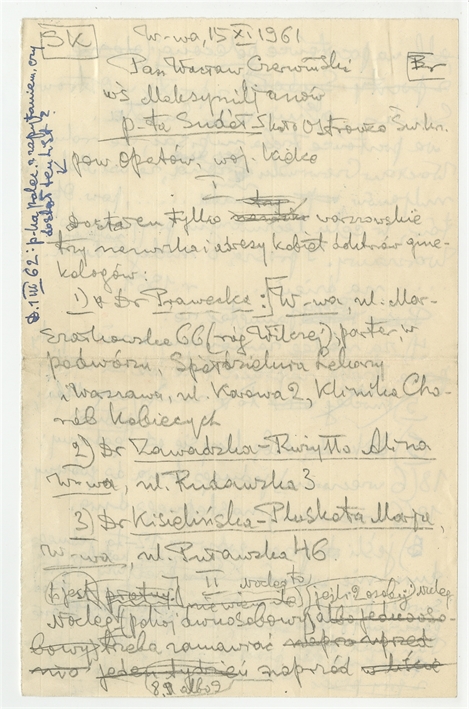 SK
W-wa, 15 XI 1961
Br
Pan Wacław Czerwiński
wś Maksymiljanów
p-ta Sudoł Skoło Ostrowca Św kn.
pow. Opatów, woj. Kielce
I
Dostałem tylko warszawskie
trzy nazwiska i adresy kobiet doktorów gine-
kologów:
1) Dr Prawecka: W-wa, ul. Mar-
szałkowska 66 (róg Wilczej), parter, w
podwórzu, Spółdzielnia Lekarzy
i Warszawa, ul. Karowa 2, Klinika Cho-
rób Kobiecych
2) Dr Zawadzka-Różytło Alina
W-wa, ul. Rudawska 3
3) Dr Kisielińska-Pluskota Marja,
W-wa, ul. Puławska 46.
II
jest nocleg to jeśli 2 osoby
Nocleg (pokój dwuosobowy albo jednooso-
bowy) trzeba zamawiać
jeden tydzień naprzód
8, 9 albo 2
D. 1 III 62: p-ką polec. z zapytaniem, czy
dostał ten list?